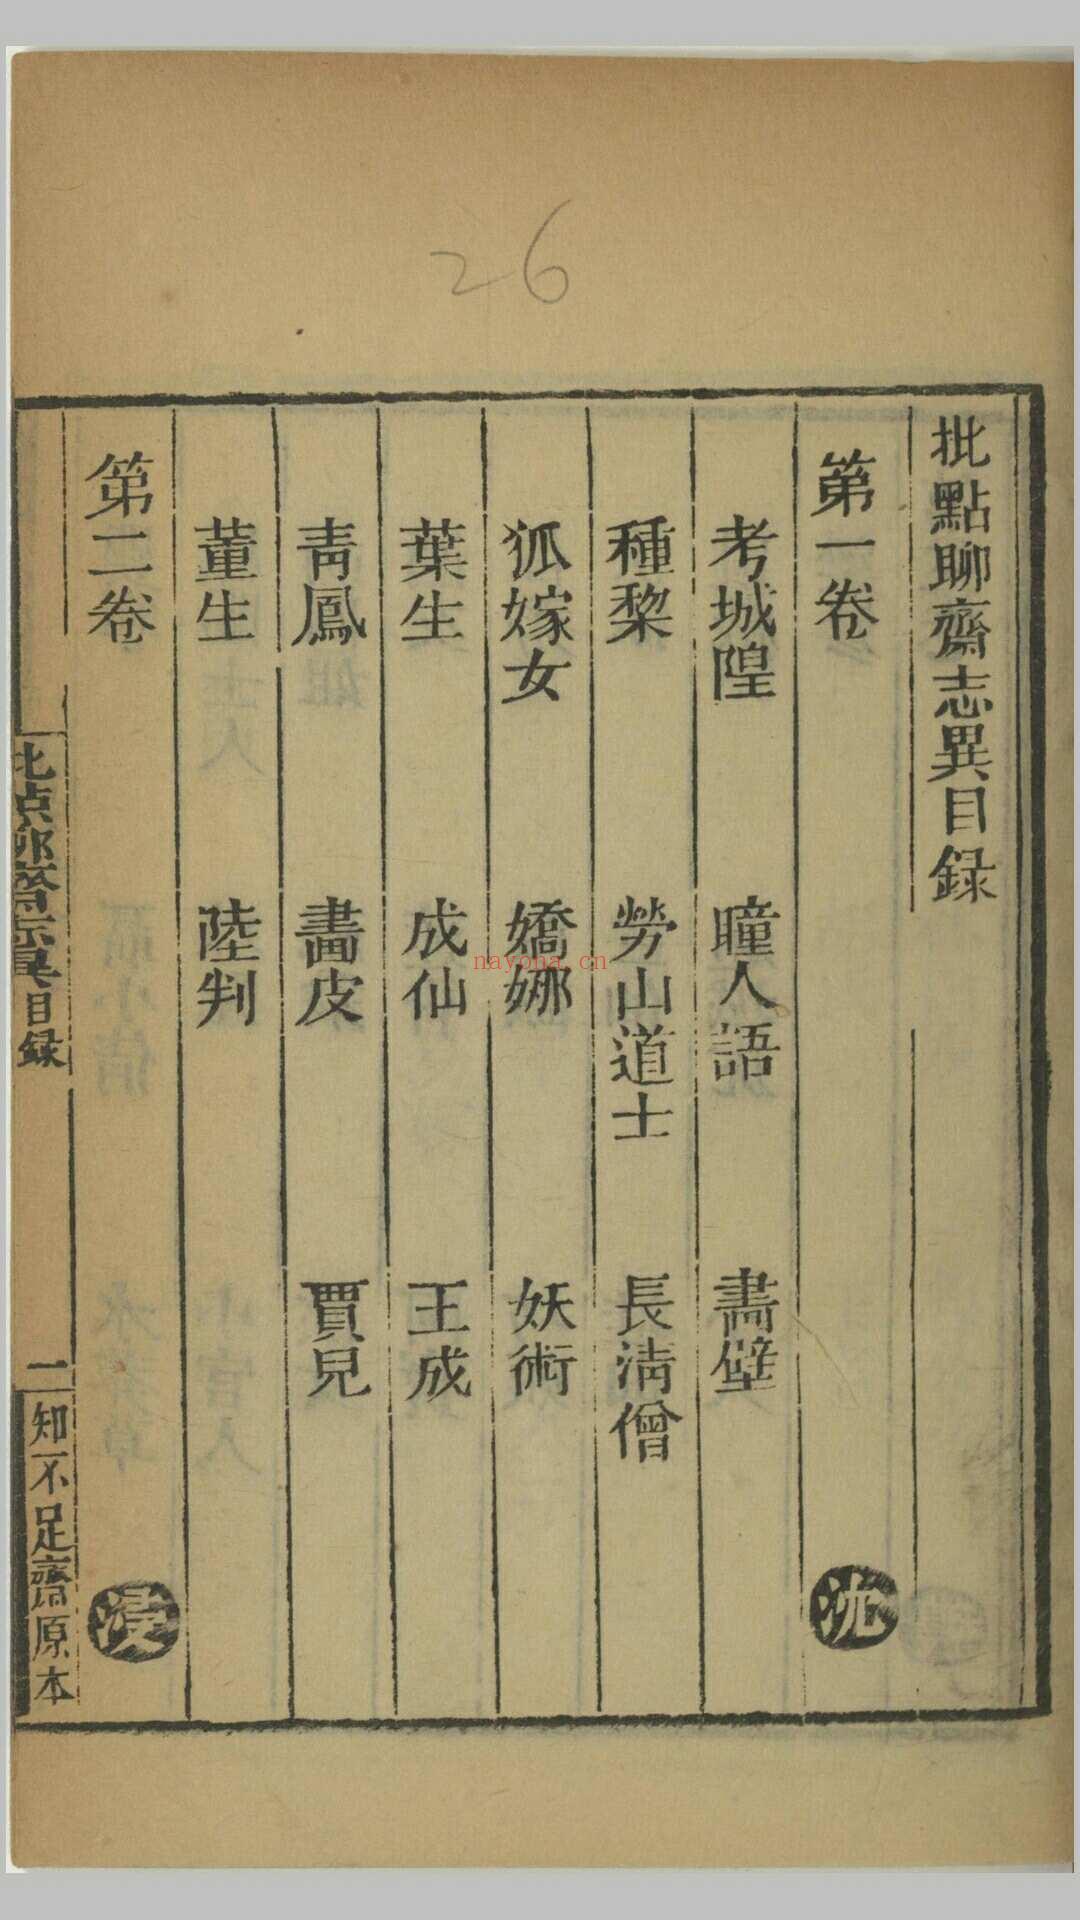 26
批點聊齋志異目録
第一卷 沈
考城隍 瞳人語 畫壁
種棃 勞山道士 長淸僧
狐嫁女 嬌娜 妖術
葉生 成仙 王成
靑鳳 畫皮 賈兒
董生 陸判
第二卷 浸
批点聊斎志異目録 一 知不足齋原本
nayona.cn